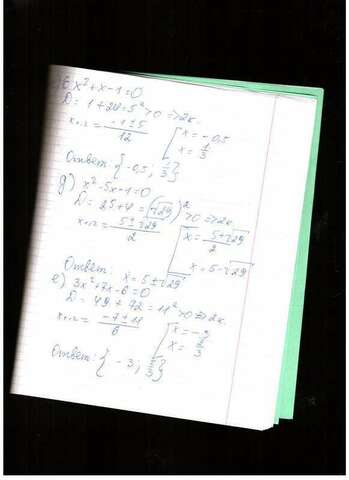 6x²+x-1=0
D = 1+24=5² >0 => 2к.
x₁,₂ = (-1±5)/12 [ x = -0,5
x = 1/3
Ответ: {-0,5; 1/3}
д) x²-5x-1=0
D = 25+4 = (√29)² >0 => 2к.
x₁,₂ = (5±√29)/2 [ x = (5+√29)/2
x = 5-√29
Ответ: x = 5±√29
е) 3x²+7x-6=0
D = 49+72 = 11² >0 => 2к
x₁,₂ = (-7±11)/6 [ x = -3
x = 2/3
Ответ: {-3; 2/3}